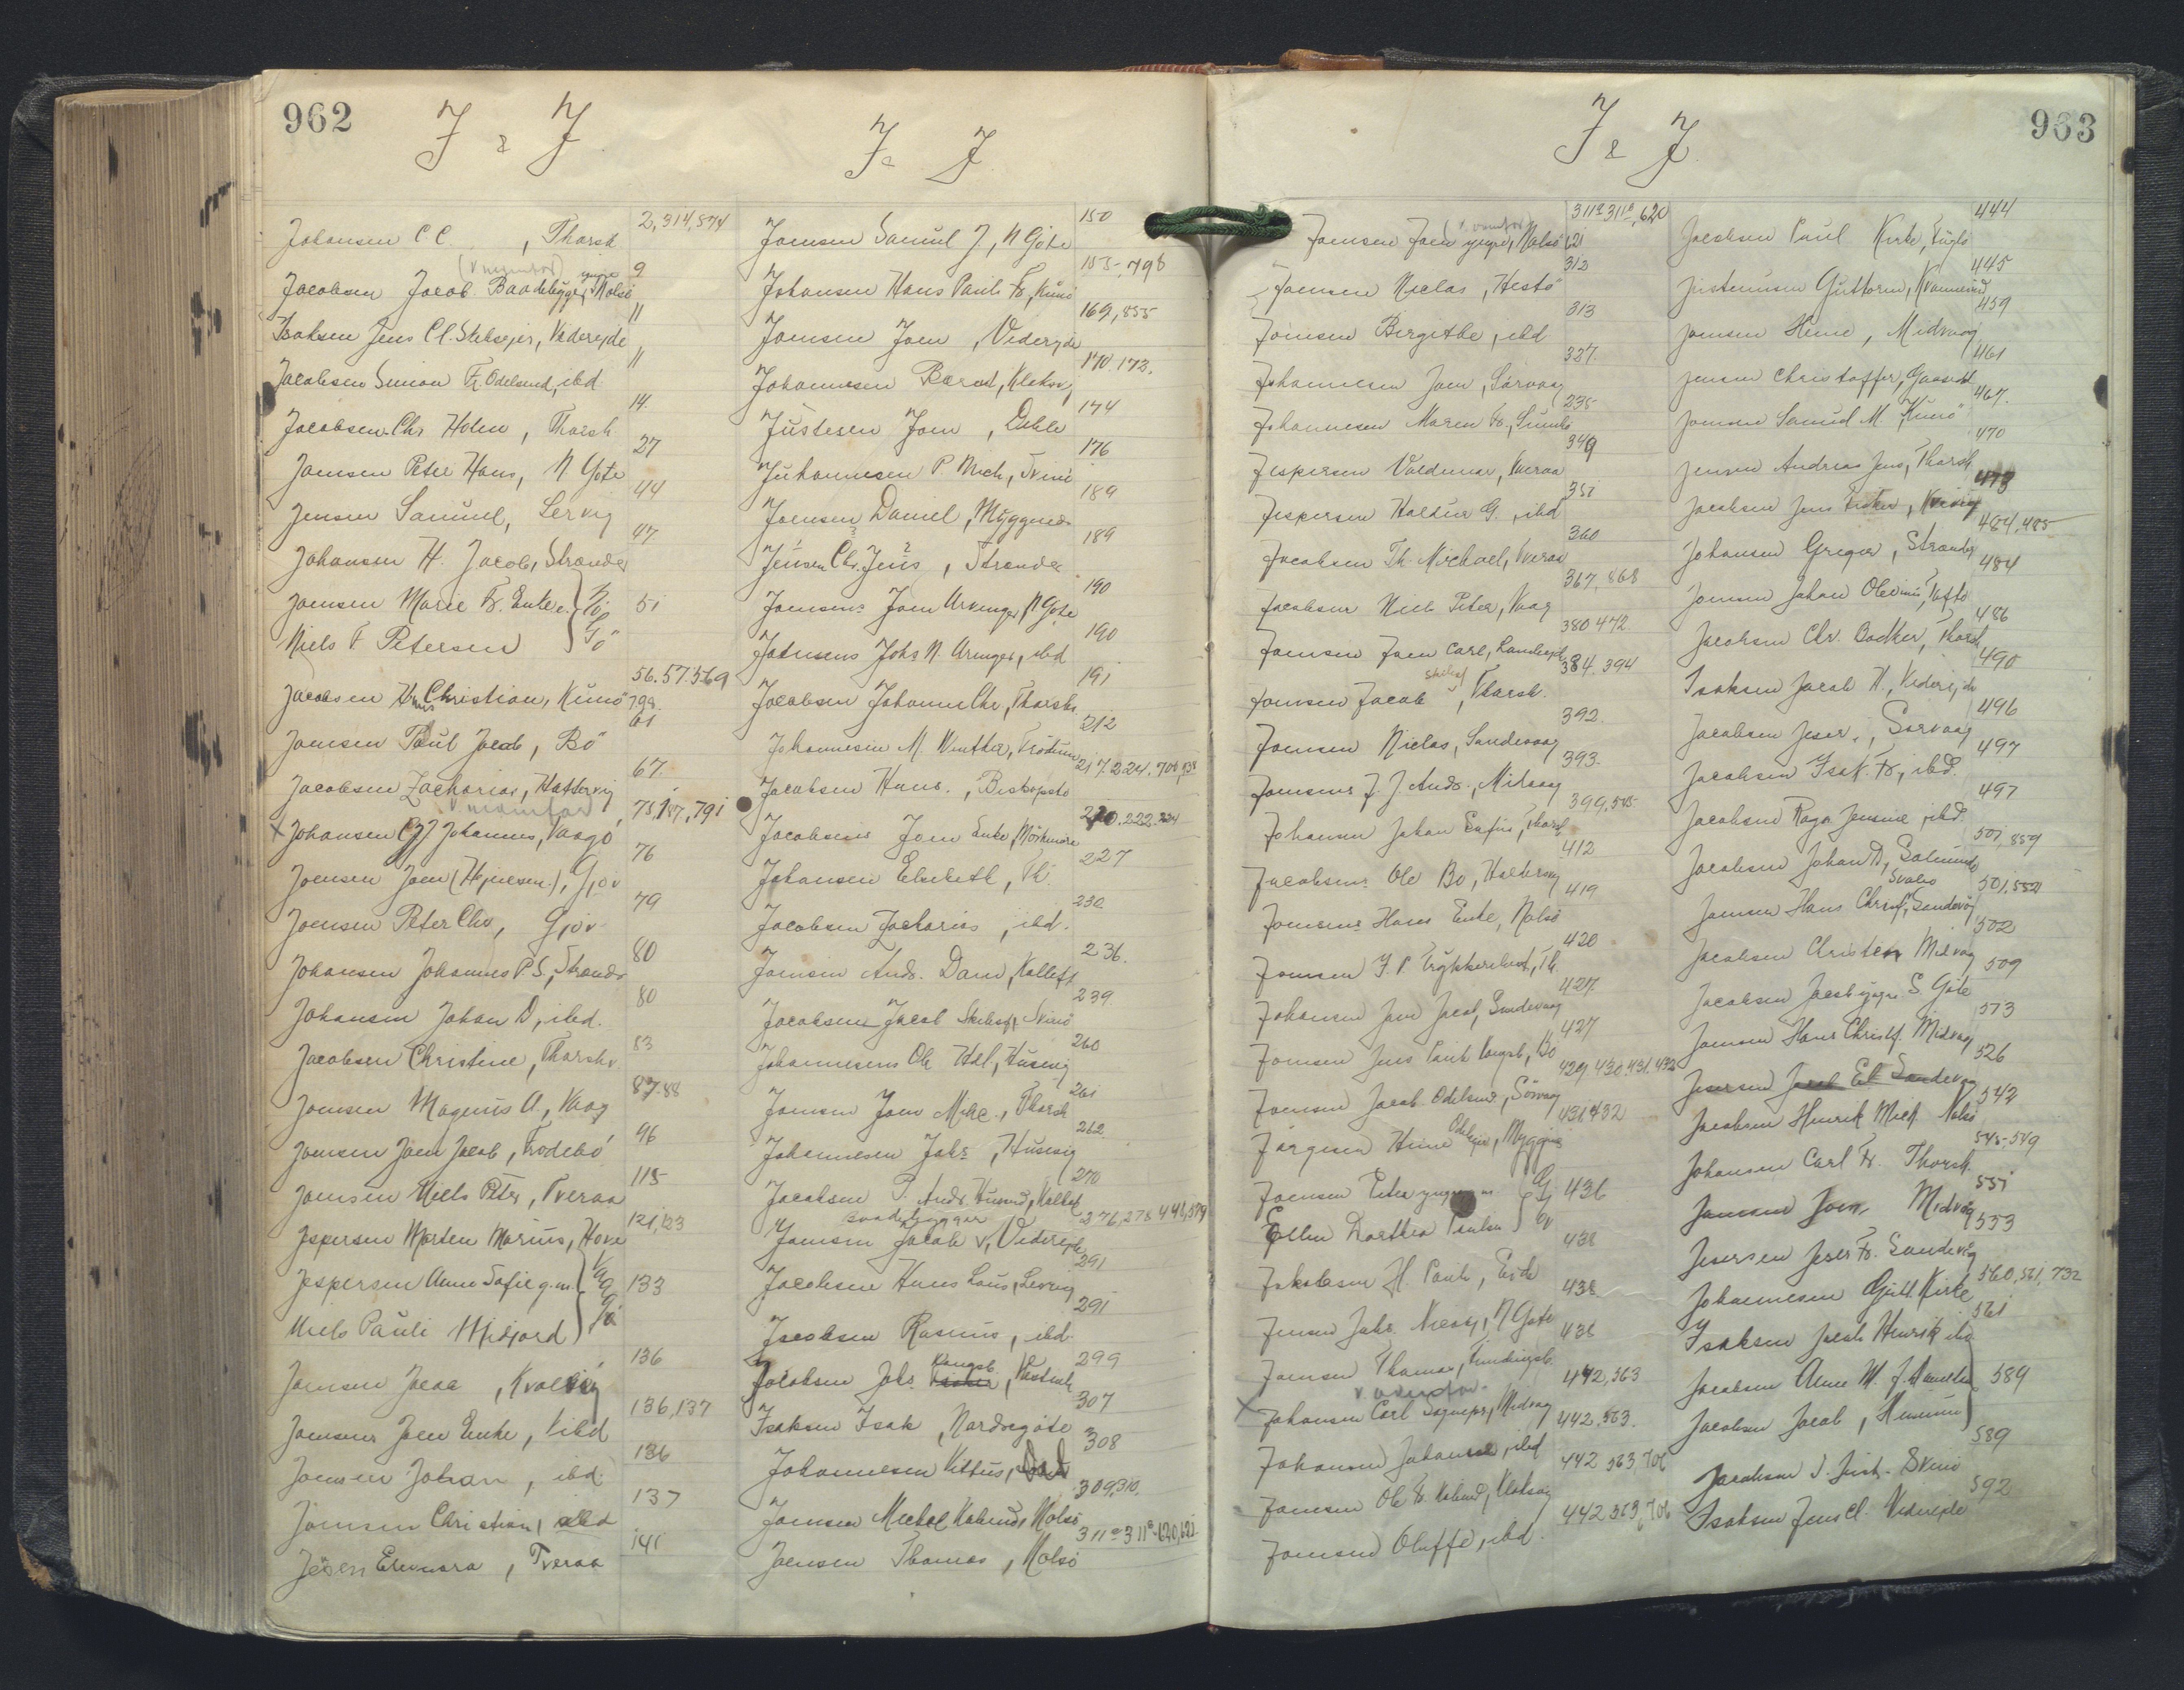 962
J & J
J & J
Johansen C C , Thorsh 2,314,574
Jacobsen Jacob Baadebygger, Nolsö 9
Isaksen Jens Cl. , Viderejde 11
Jacobsen Simon Fr. Odelsmd, ibd. 11
Jacobsen Chr Holm , Thorsh 14.
Joensen Peter Hans, N Gøte 27
Jensen Samuel, Lervig 44
Johansen H. Jacob, Strænder 47
Joensen Marie Fr. Enke 51
Niels F Petersen
Jacobsen Hans Christian, Kunö 56.57.569 799.
Joensen Poul Jacob, Bö 61
Jacobsen Zacharias, Hattervig 67.
x Johansen Johannes, Vaagö 75,187,791
Joensen Joen , Gjov 76
Joensen Peter Chr, Gjov 79
Johansen Johannes P S, Strænder 80
Johansen Johan D, ibd. 80
Jacobsen Christine, Thorshv 83
Joensen Magnus A, Vaag 87.88
Joensen Joen Jacob, Frodebö 96
Joensen Niels Peter, Tveraa 115
Jespersen Morten Marius, Hove 121,123
Jespersen Anne Sofie g.m. 133
Niels Pauli Midjord
Joensen Jocae , Kvalvig 136
Joensens Joen Enke, ibd 136,137
Joensen Johan , ibd. 136
Joensen Christian, ibd 137
, Tveraa 141
Joensen Samuel J, N Gøte 150
Johansen Hans Pauli Fr, Kunö 153,798
Joensen Joen , Viderejde 169,855
Johannesen Berent, Kleksv 170.172.
Justesen Joen , Dahle 174
Johannesen P Mich, Svinö 176
Joensen Daniel, Myggenæs 189
Jensen Chr. Jens , Strænder 189
Joensens Joen Arvinger, N Gøte 190
Joensens Johs N. Arvinger, ibd 190
Jacobsen Johanne Chr, Thorsh 191
Johannesen M Winther, Frodum 212
Jacobsen Hans. , Biskopstø 217.224.706,
Jacobsens Joen Enke, Mörkenøre 220,222.224
Johansen Elsebeth, Th. 227
Jacobsen Zacharias , ibd. 230
Joensen Andr. Dan, Kollefj. 236.
Jacobsen Jacob Skibsf, Svinö 239.
Johannesens Ole Hdl, Husevig 260
Joensen Joen Mikc., Thorsh 261
Johannesen Johs , Husevig 262.
Jacobsen P. Andr. , Kollef 270
baadebygger
Joensen Jacob v, Viderejde 276,278
Jacobsen Hans Louis, Lervig 291
Jacobsen Rasmus, ibd. 291
Jacobsen Johs Kongsb. , Vestmh 299
Isaksen Isak , Nordregøte 307
Johannesen Vittus, 308
Joensen Michal , Nolsö 309,310.
Joensen Thomas , Nolsö 311a 311b 620,621
963
J & J.
Joensen Joen yngre, Nolsö 311a 311b, 620 621
Joensen Niclas , Hestö 312
Joensen Birgithe , ibd 313
Johannesen Joen , Sørvaag 327.
Johannesen Maren Fr. , Sumbö 335
Jespersen Valdemar, Kveraa 349
Jespersen Haldur G. , ibd 351
Jacobsen Th. Michael, Kveraa 360
Jacobsen Niels Peter, Vaag 367, 868
Joensen Joen Carl, 380 472.
Joensen Jacob , Thorsh. 384.394
Joensen Niclas, Sandevaag 392.
Joensens J. J. Andr., Midvaag 393.
Johansen Johan , Thorsh 399,
Jacobsens Ole Bo, Hattervig 412
Joensens Hans Enke, Nolsö 419
Joensen J. P. , Th 420
Johansen Joen Jacob, Sandevaag 427.
Joensen Jens Pauli Kongsb, Bö 427
Joensen Jacob Odelsmd., Sörvaag 429.430.431.432
Jörgensen Hans , Myggenæs 431 432
Joensen Peter yngre g.m. 436
Ellen Dorthea Poulsen
Jakobsen H. Pauli, Eide 438
Jensen Johs , N Gøte 438
Joensen Thomas, Fundingsb. 438
x Johansen Carl , Midvag 442,563
Johansen Johannes , ibd 442.563.
Joensen Ole Fr. , Klaksvig 442 563,706
Joensen Oluffe, ibd. 442 563,706
Jacobsen Paul Kirke, Fuglö 444
Justinussen Guttorm, Kvannesund 445
Joensen Heine , Midvaag 459
Jensen Christoffer, Gaasedal 461
Joensen Samuel M , Kunö 467.
Jensen Andreas Jens, Thorsh 470
Jacobsen Jens , Kvivig 473
Johansen Gregor , Strænder 484,485
Joensen Johan Olevinus, Tofte 484
Jacobsen Chr. Bødker, Thorsh 486
Isaksen Jacob H., Viderejde 490
Jacobsen , Sørvaag 496
Jacobsen Isak. Fr, ibd. 497
Jacobsen Jensine , ibd. 497
Jacobsen Johan D, Salmunde 501,859
Joensen Hans Christf, Sandevog 501,
Jacobsen Christen Midvag 502
Jacobsen Jacob yngre. S. Gøte 509
Joensen Hans Christf. Midvag 513
Jesersen 526
Jacobsen Henrik Mich Nolsö 542
Johansen Carl Fr. Thorsh. 545,549
Joensen Joen, Midvag 551
Jesersen Fr. Sandevog 553
Johannesen Gutt. Kirke 560,561,732
Isaksen Jacob Henrik ibd 561
Jacobsen Anne M. 589
Jacobsen Jacob , Husum
Jacobsen J. Just. Svinö 589
Isaksen Jens Cl. Viderejde 592